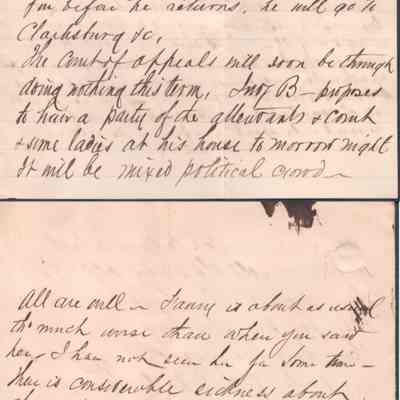 you before he returns, he will go to
Clarksburg &c,
The Court of appeals will soon be through
doing nothing this term, B - proposes
to have a party of the attendants & Court
& some ladies at his house to morrow night
It will be mixed political crowd -
All are well - Fanny is about as usual
tho much worse than when you said
her, I have not seen her for some time -
There is considerable sickness about